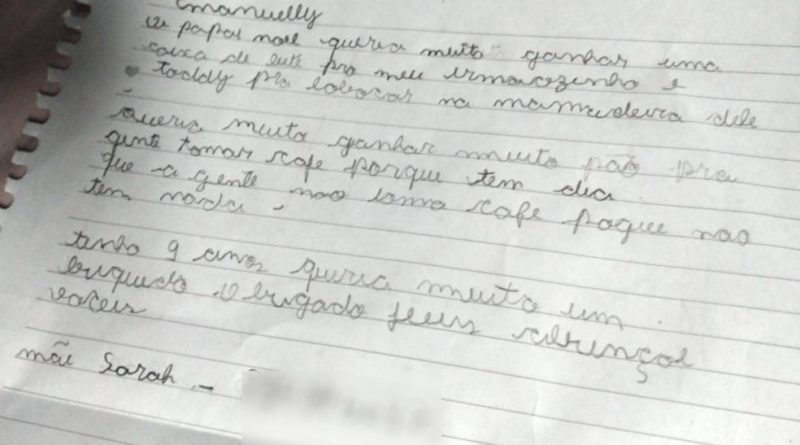 Emanuelly
papai noel queria muito ganhar uma
caixa de leite pro meu irmaozinho e
toddy pra colocar na mamadeira dele
queria muito ganhar muito pão pra
gente tomar cafe porque tem dia
que a gente nao toma cafe poque nao
tem nada.
tenho 9 anos queria muito um
briquedo obrigado feliz
voceis
mãe Sarah -